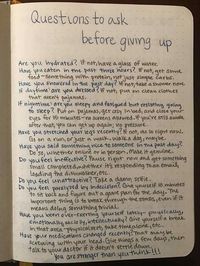 Questions to ask
before giving up
Are you hydrated? If not, have a glass of water.
Have you eaten in the past three hours? If not, get some
food - something with protein, not just simple carbs.
Have you showered in the past day? If not, take a shower now.
If daytime: are you dressed? If not, put on clean clothes
that aren't pajamas.
If nighttime: are you sleepy and fatigued but resisting going
to sleep? Put on pajamas, get cozy in bed, and close your
eyes for 15 minutes - no screens allowed. If you're still awake
after that, you can get up again; no pressure.
Have you stretched your legs recently? If not, do so right now.
Go on a run or take a walk, walk a dog, maybe.
Have you said something nice to someone in the past day?
Do so, whether online or in person. Make it genuine.
Do you feel ineffective? Pause right now and get something
small completed, whether it's responding to an email,
loading the dishwasher, etc.
Do you feel unattractive? Take a damn selfie.
Do you feel paralyzed by indecision? Give yourself 10 minutes
to sit back and figure out a game plan for the day. The
important thing is to break through the stasis, even if it
means doing something trivial.
Have you been over-exerting yourself lately - physically,
emotionally, socially, intellectually? Give yourself a break
in that area
Have your medications changed recently? That may be
screwing with your head. Give things a few days, then
talk to your doctor if it doesn't settle down.
You are stronger than you think!!!